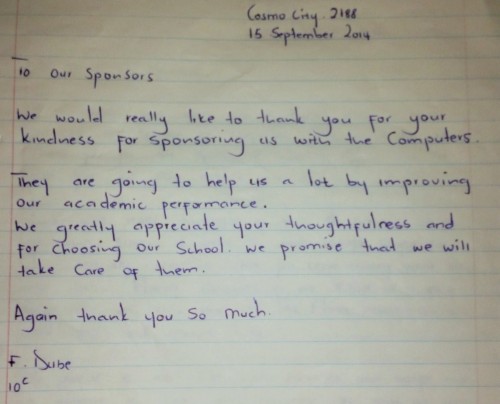 Cosmo City. 2188
15 September 2014
To Our Sponsors
We would really like to thank you for your
kindness for sponsoring us with the Computers.
They are going to help us a lot by improving
our academic performance.
We greatly appreciate your thoughtfulness and
for choosing our School. We promise that we will
take care of them.
Again thank you so much.
F. Dube
10C